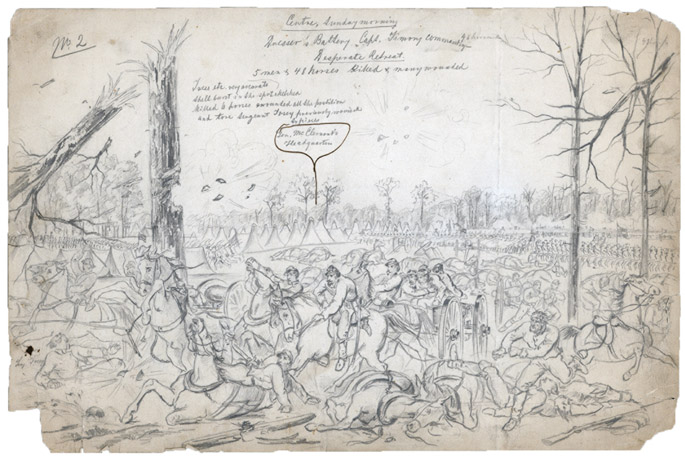 No 2
Centre, Sunday morning
Dresser's Battery Capt. Timony commanding
Desperate Retreat
5 men & 48 horses Killed & many wounded
Trees etc. very accurate
shell burst in the spot sketched
killed 6 horses wounded all the postilion
and tore Sergeant previously wounded
to pieces
Gen. McClernand's
Headquarters